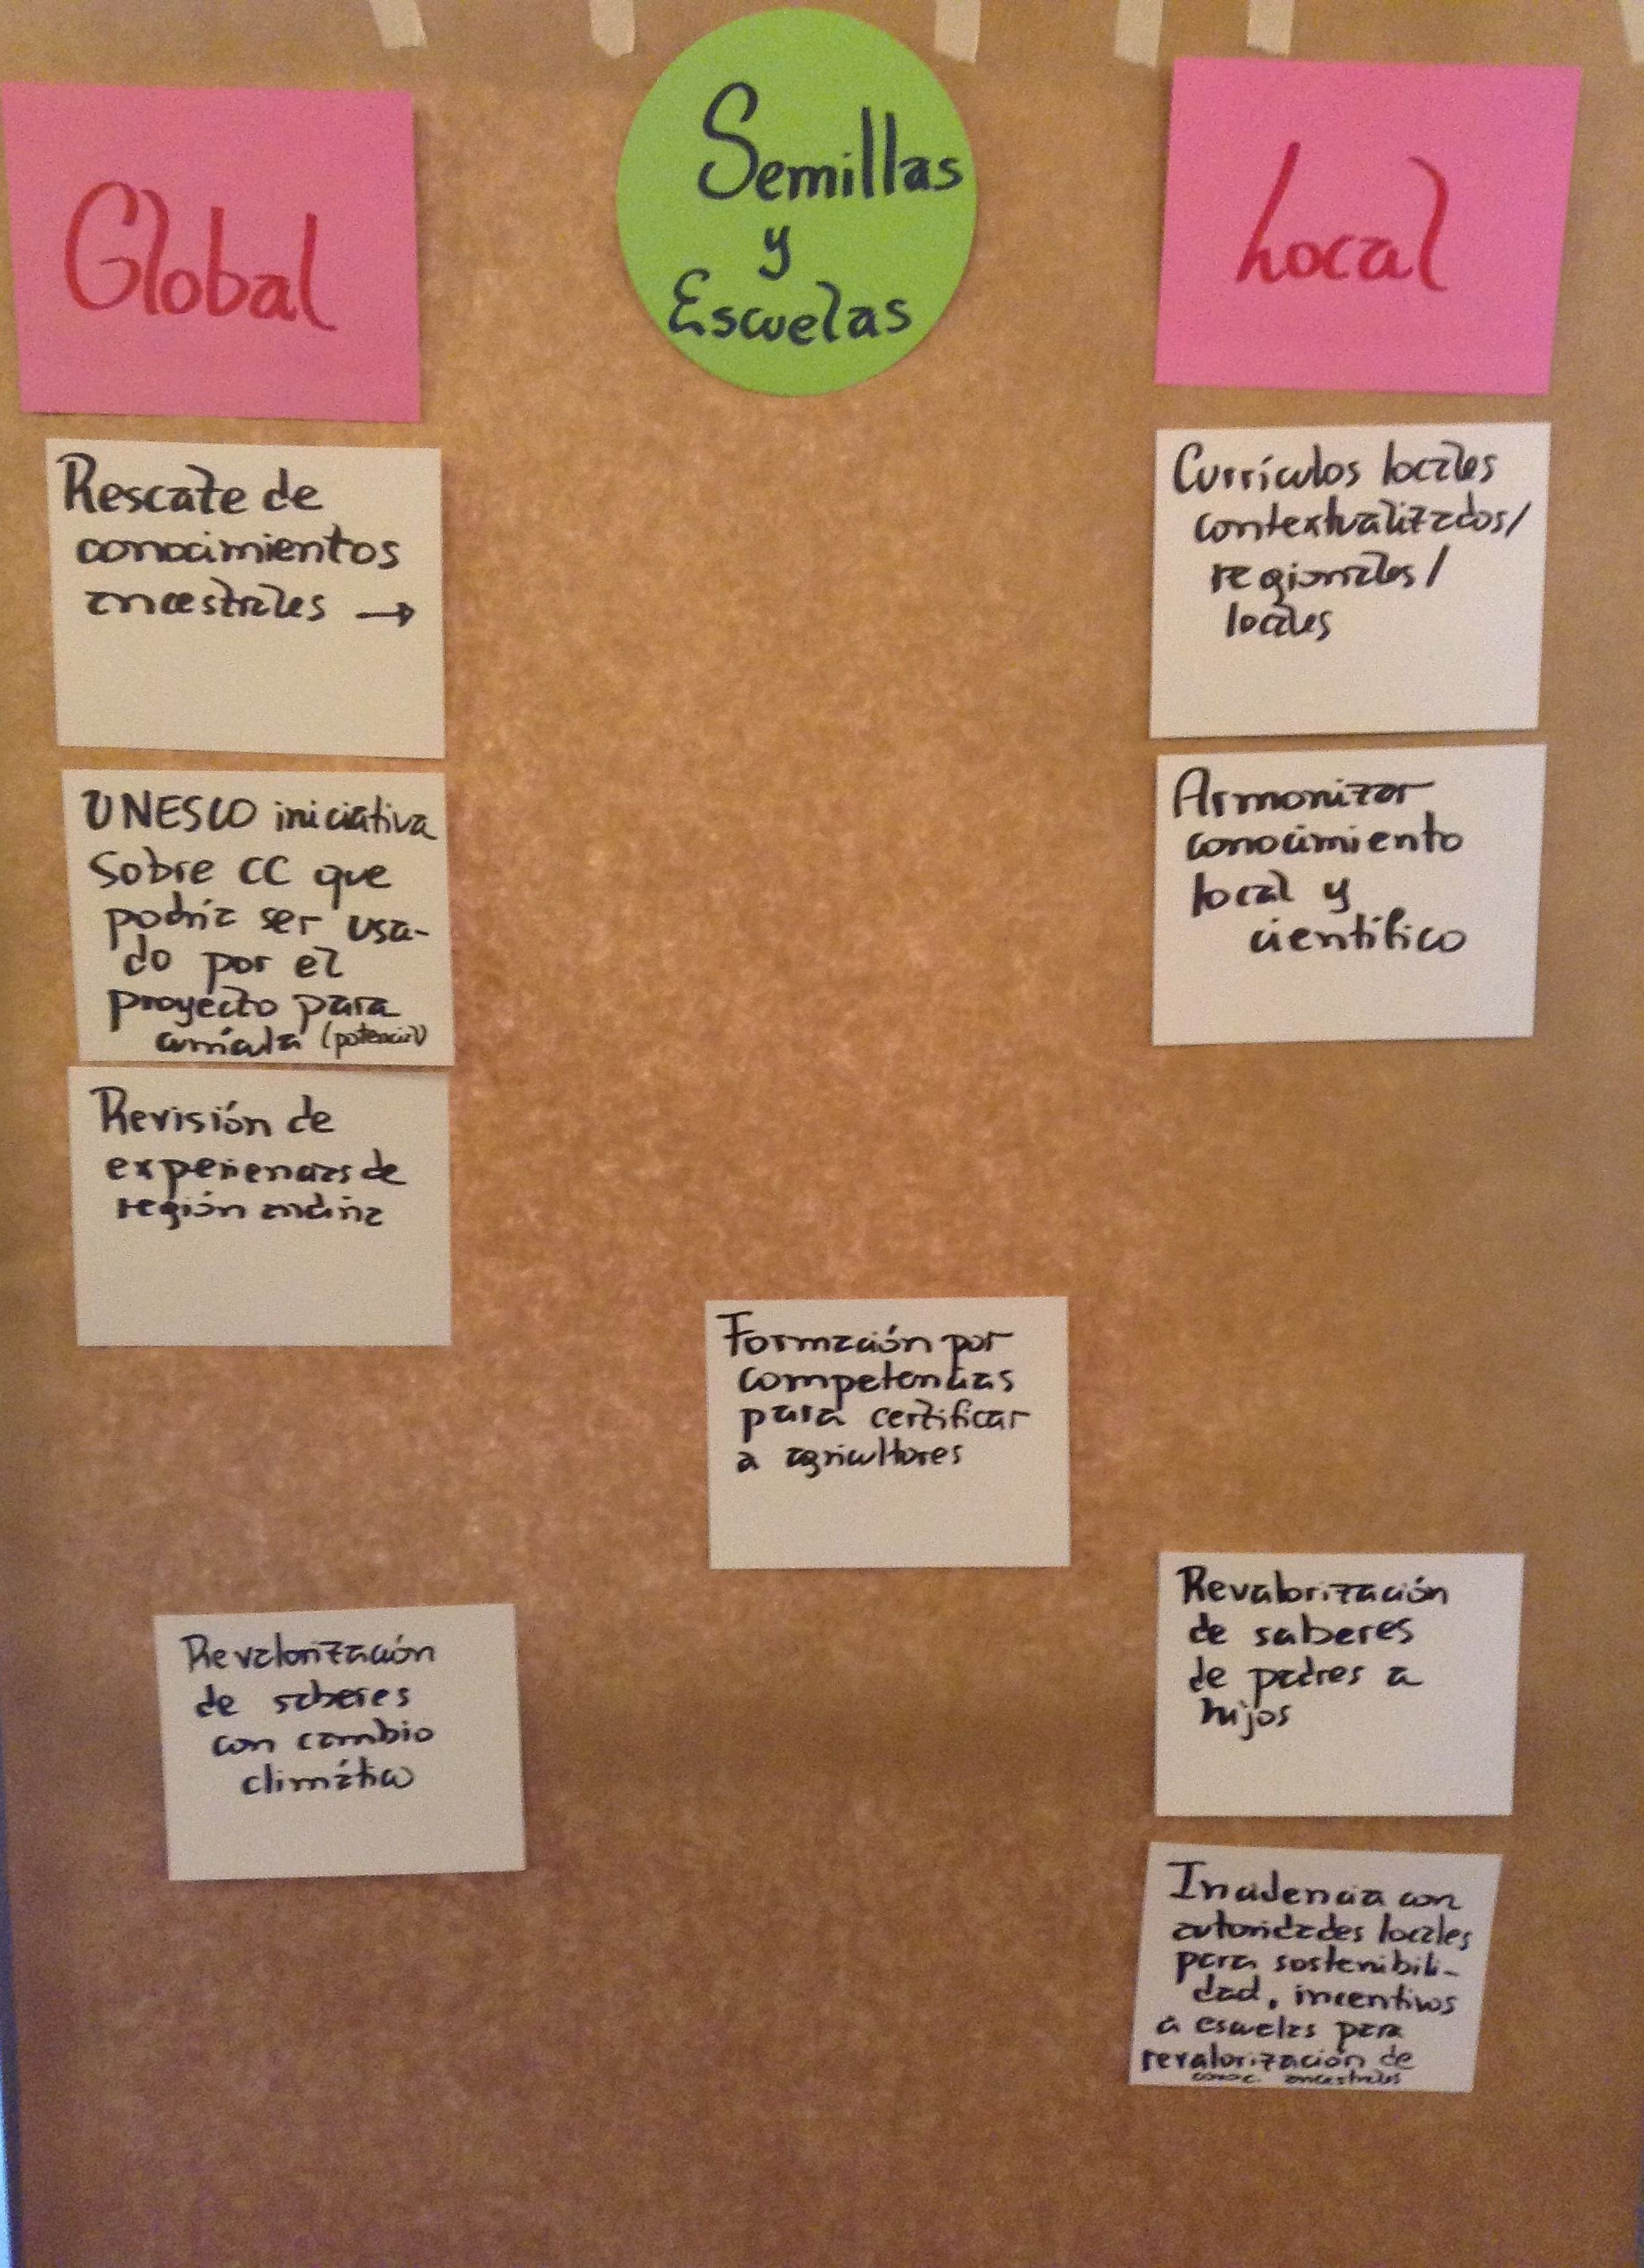 Global
Semillas
y
Escuelas
Local
Rescate de
conocimientos
ancestrales →
UNESCO iniciativa
sobre CC que
podría ser usa-
do por el
proyecto para
currícula (potencial)
Revisión de
experiencias de
región andina
Revalorización
de saberes
con cambio
climático
Formación por
competencias
para certificar
a agricultores
Currículos locales
contextualizados/
regionales/
locales
Armonizar
conocimiento
local y
científico
Revalorización
de saberes
de padres a
hijos
Incidencia con
autoridades locales
para sostenibili-
dad, incentivos
a escuelas para
revalorización de
conoc. ancestrales